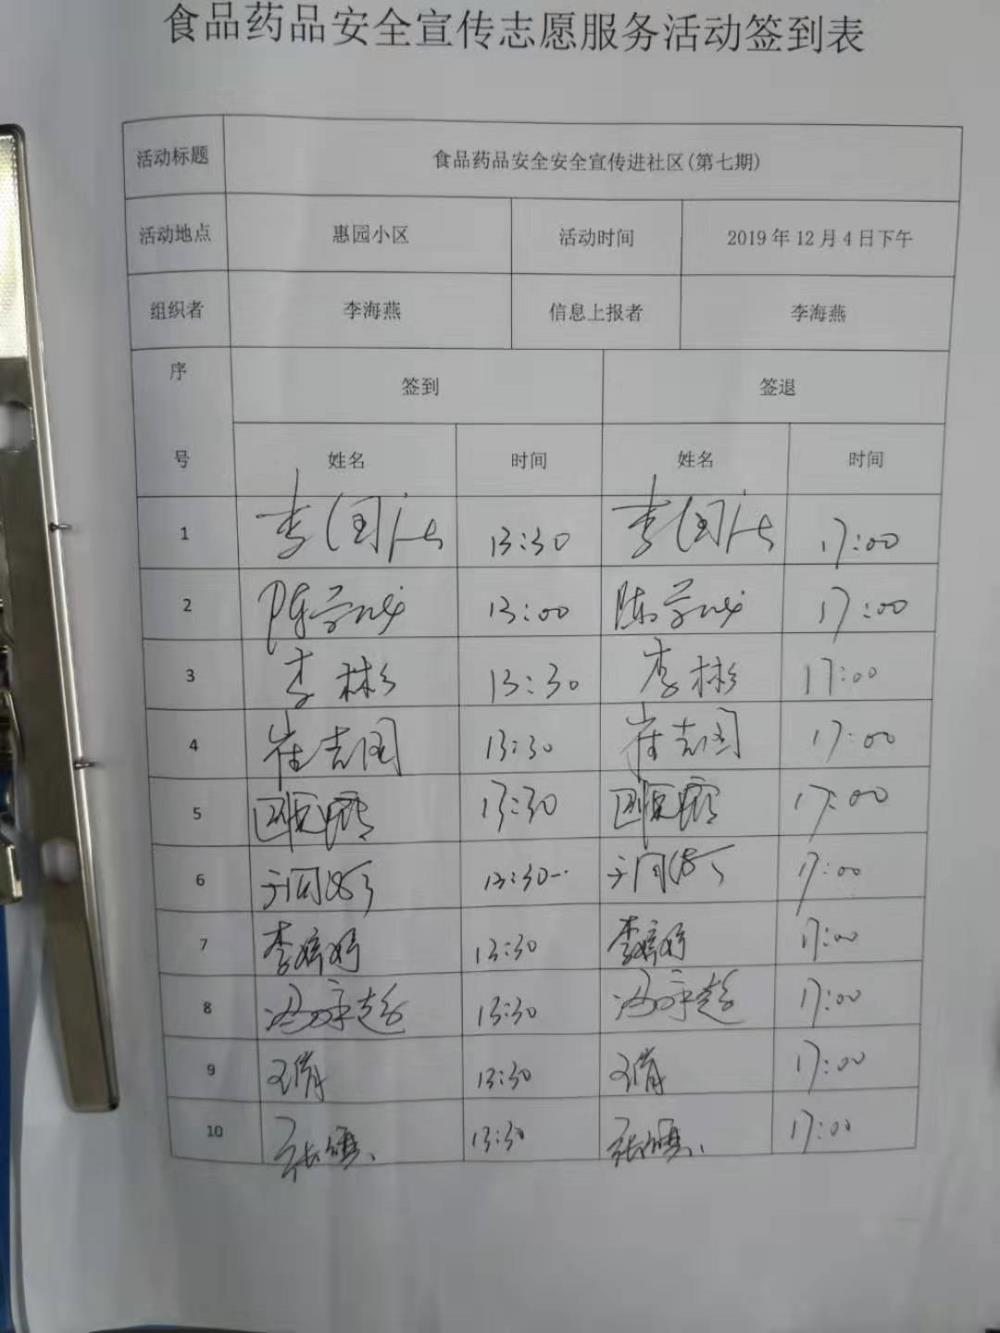 食品药品安全宣传志愿服务活动签到表
活动标题 食品药品安全安全宣传进社区(第七期)
活动地点 惠园小区 活动时间 2019年12月4日下午
组织者 李海燕 信息上报者 李海燕
序号 签到 签退
姓名 时间 姓名 时间
1 13:30 17:00
2 13:00 17:00
3 李彬 13:30 李彬 17:00
4 崔志国 13:30 崔志国 17:00
5 13:30 17:00
6 13:30 17:00
7 李婷婷 13:30 李婷婷 17:00
8 13:30 17:00
9 13:30 17:00
10 13:30 17:00